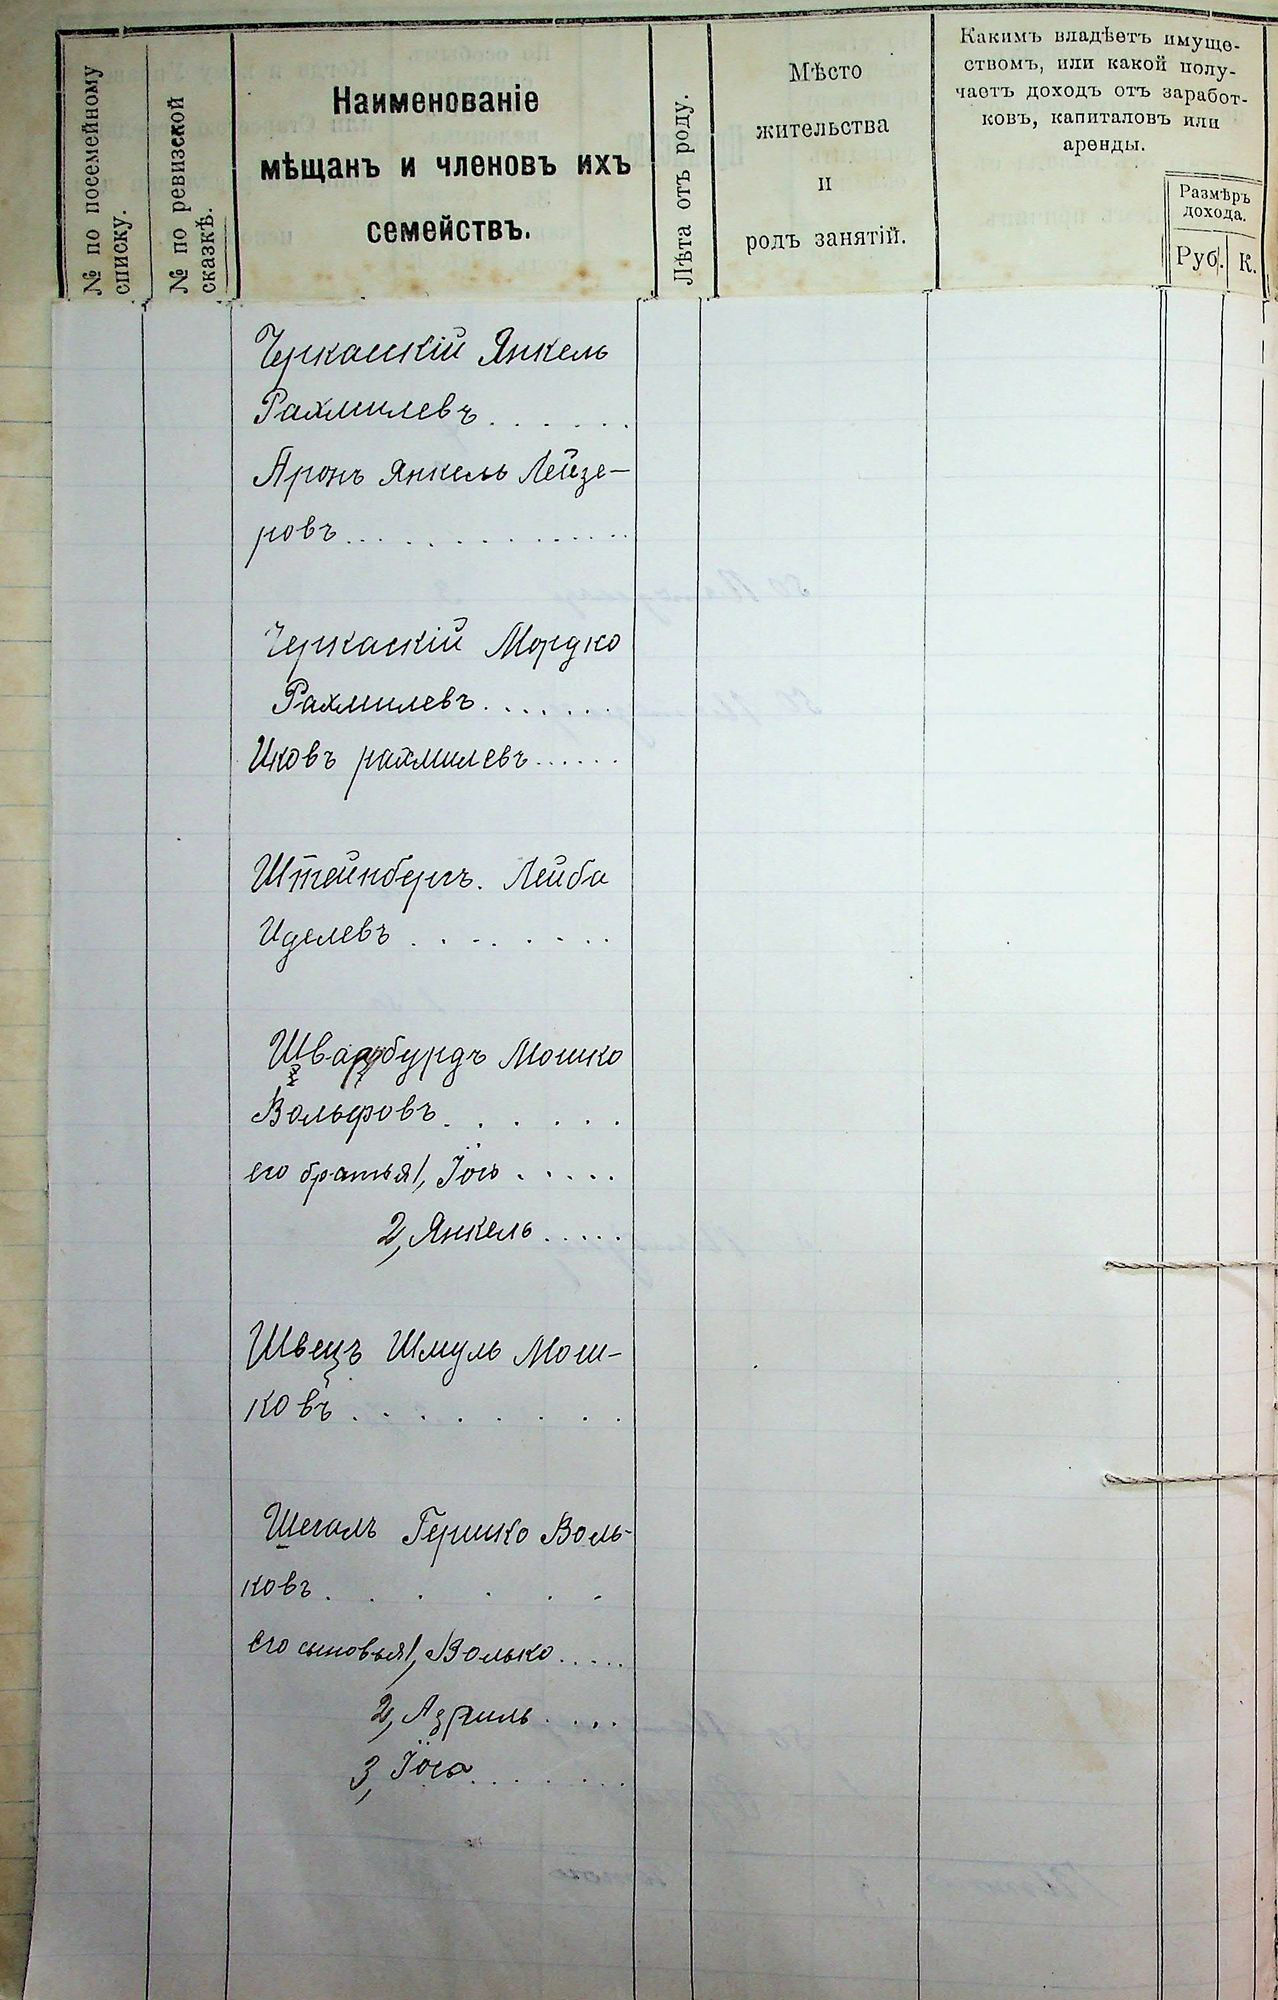 № по посемейному
списку.
№ по ревизской
сказкѣ.
Наименованіе
мѣщанъ и членовъ ихъ
семействъ.
Лѣта отъ роду.
Мѣсто
жительства
и
родъ занятій.
Какимъ владѣетъ имуще-
ствомъ, или какой полу-
чаетъ доходъ отъ заработ-
ковъ, капиталовъ или
аренды.
Размѣръ
дохода.
Руб. К.
Черкасскій Янкель
Рахмилевъ . . . . . .
Аронъ Янкель Лейзе-
ровъ . . . . . . . . . . . .
Черкаскій Мордко
Рахмилевъ . . . . . . .
Ицковъ рахмилевъ . . . . . .
Штейнбергъ. Лейба
Иделевъ . . . . . . . .
Шварцбурдъ Мошко
Вольфовъ . . . . . . .
его братья 1, Іось . . . . .
2, Янкель . . . . .
Швецъ Шмуль Мош-
ковъ . . . . . . . . .
Шегалъ Гершко Воль-
ковъ . . . . . .
его сыновья 1, Волько . . . . .
2, Азриль . . . .
3, Іось . . . . . . . .